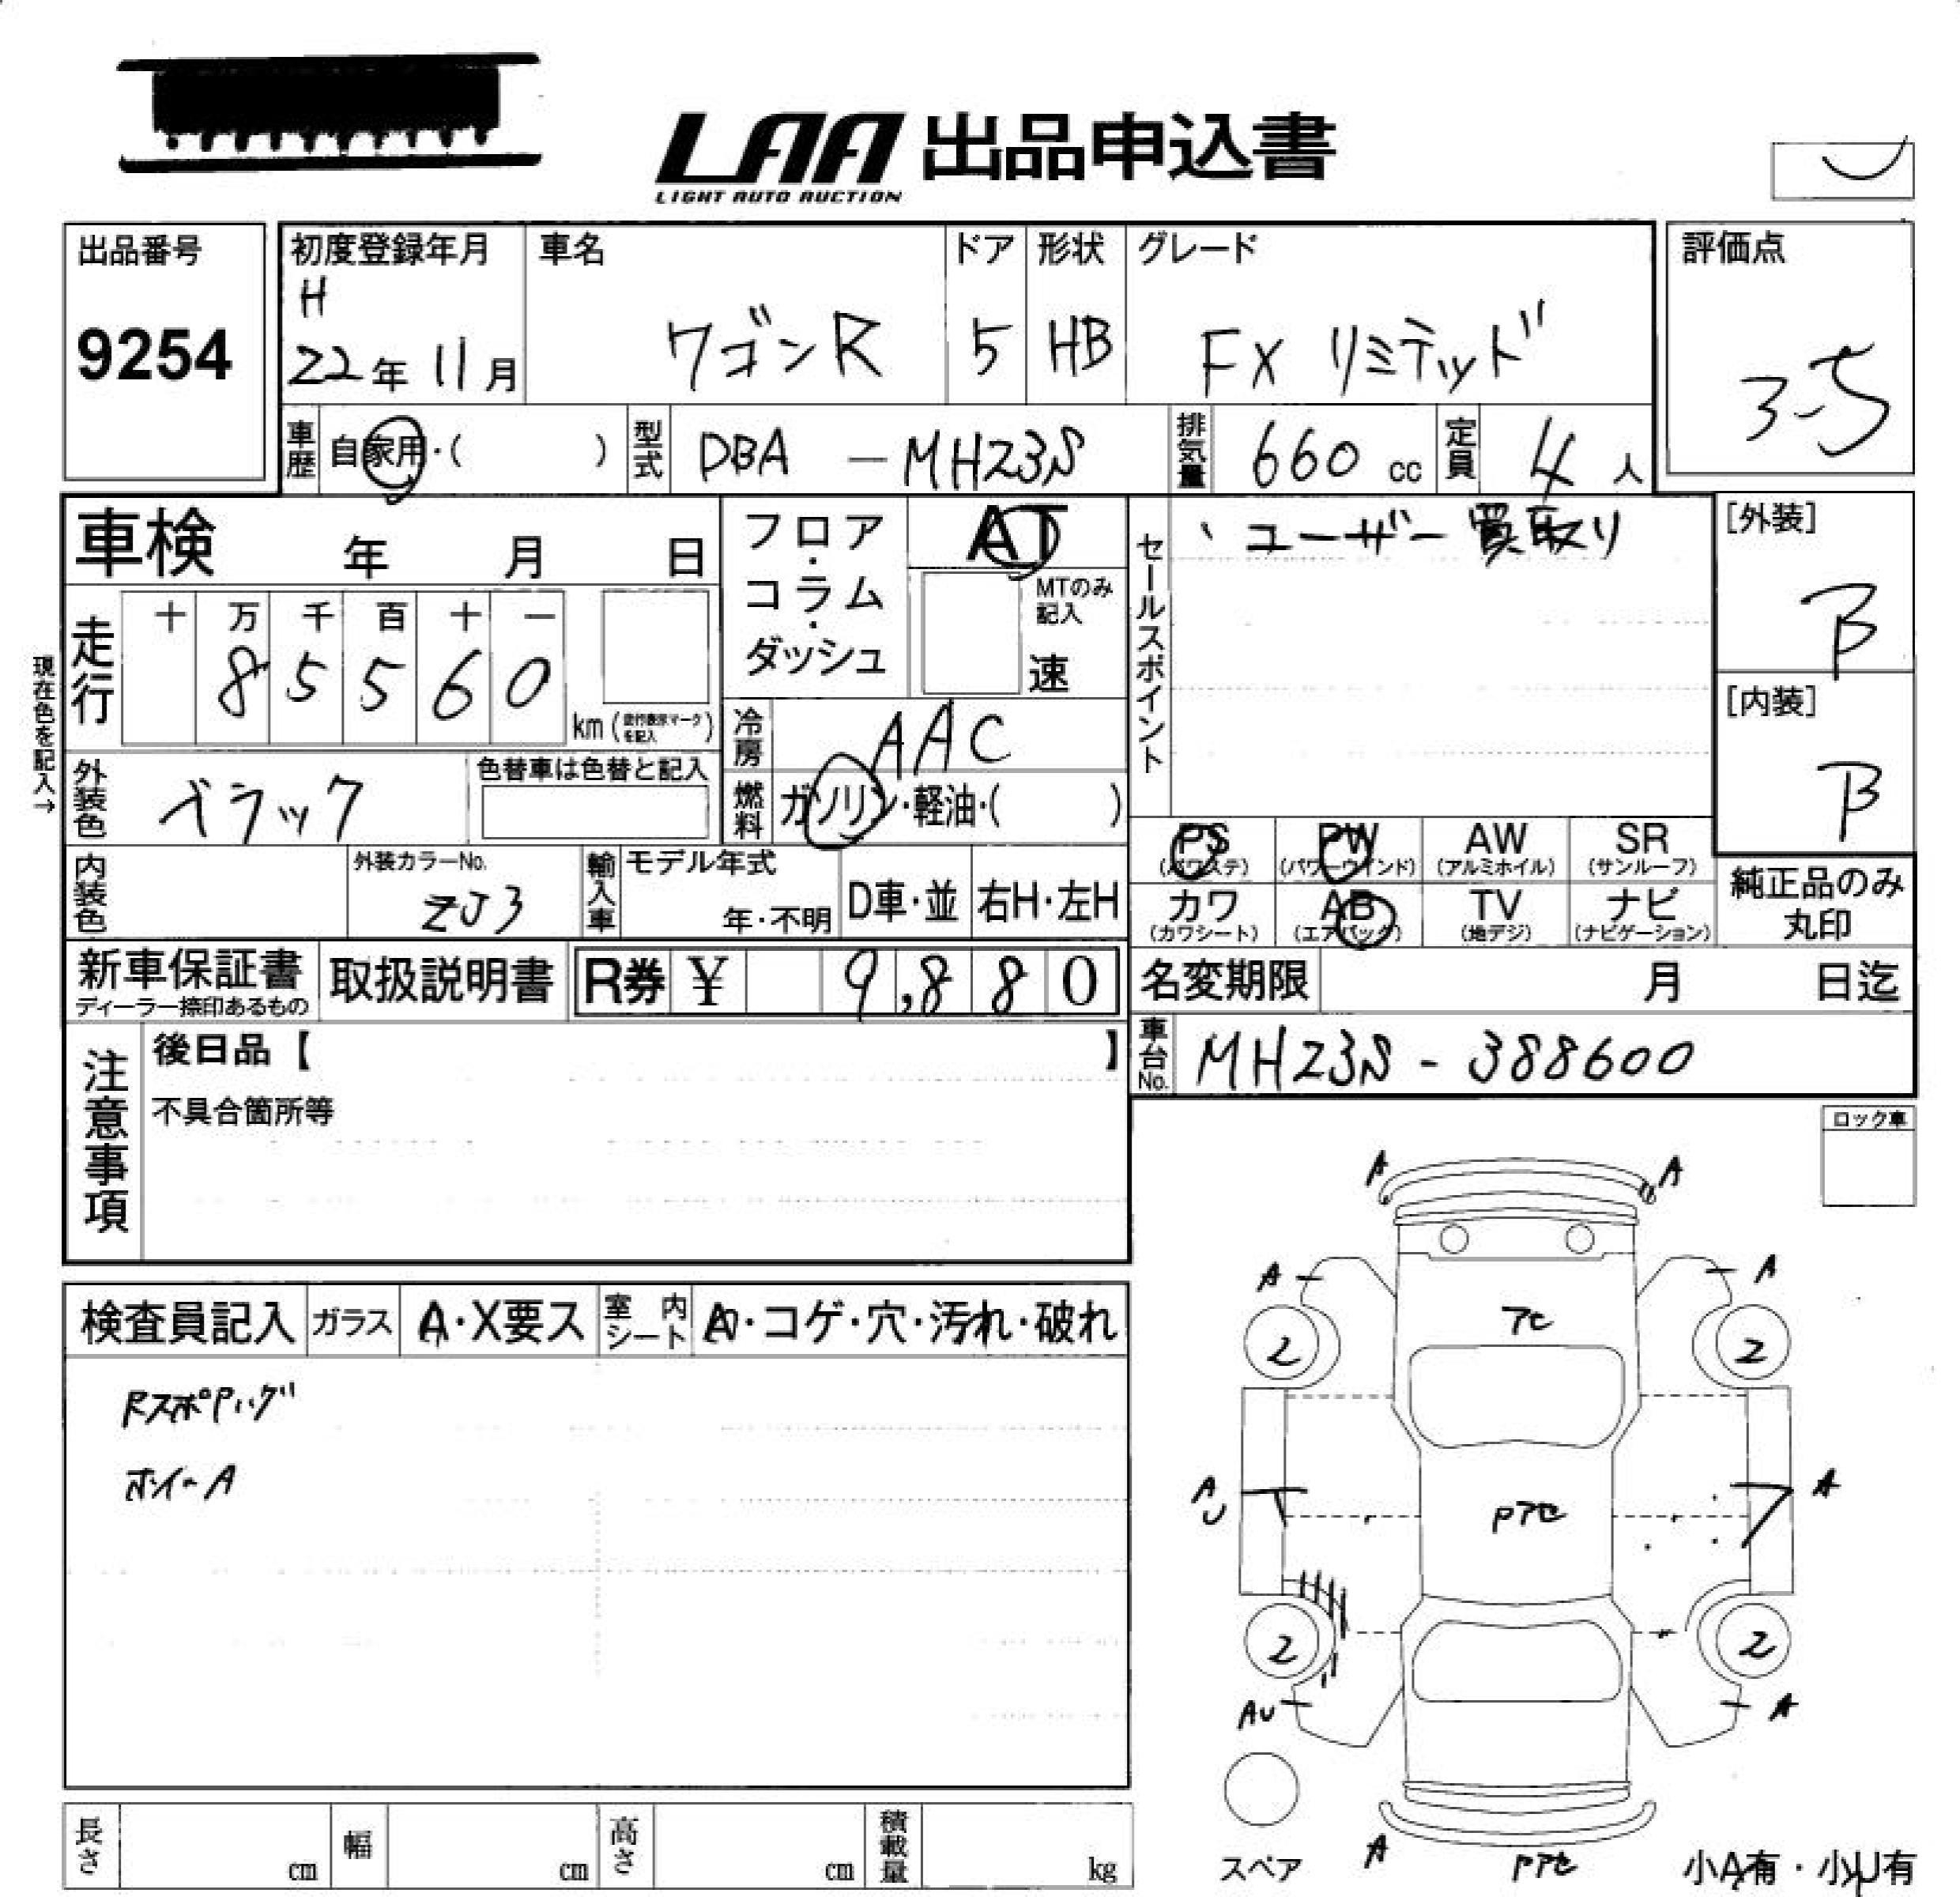 LAA 出品申込書
LIGHT AUTO AUCTION
出品番号
9254
初度登録年月
H
22年 11月
車名
ワゴンR
ドア
5
形状
HB
グレード
FX リミテッド
評価点
3-5
車歴
自家用・( )
型式
DBA - MH23S
排気量
660 cc
定員
4 人
車検 年 月 日
フロア・コラム・ダッシュ
AT
MTのみ
記入
速
セールスポイント
、ユーザー買取り
[外装]
B
[内装]
B
現在色を記入→
走行
十 万 千 百 十 一
8 5 5 6 0
km
冷房
AAC
燃料
ガソリン・軽油・( )
外装色
ブラック
色替車は色替と記入
内装色
外装カラーNo.
ZJ3
輸入車
モデル年式
年・不明
D車・並
右H・左H
PS
(パワステ)
PW
(パワーウインド)
AW
(アルミホイル)
SR
(サンルーフ)
カワ
(カワシート)
AB
(エアバック)
TV
(地デジ)
ナビ
(ナビゲーション)
純正品のみ
丸印
新車保証書
ディーラー捺印あるもの
取扱説明書
R券 ¥ 9,880
名変期限 月 日迄
車台No.
MH23S - 388600
注意事項
後日品【 】
不具合箇所等
ロック車
検査員記入
ガラス
A・X要ス
室内シート
・コゲ・穴・汚れ・破れ
ホイールA
A
A
A
A
アセ
2
2
A
U
Pアセ
A
2
2
AU
A
スペア
A
Pアセ
小A有・小U有
長さ
cm
幅
cm
高さ
cm
積載量
kg